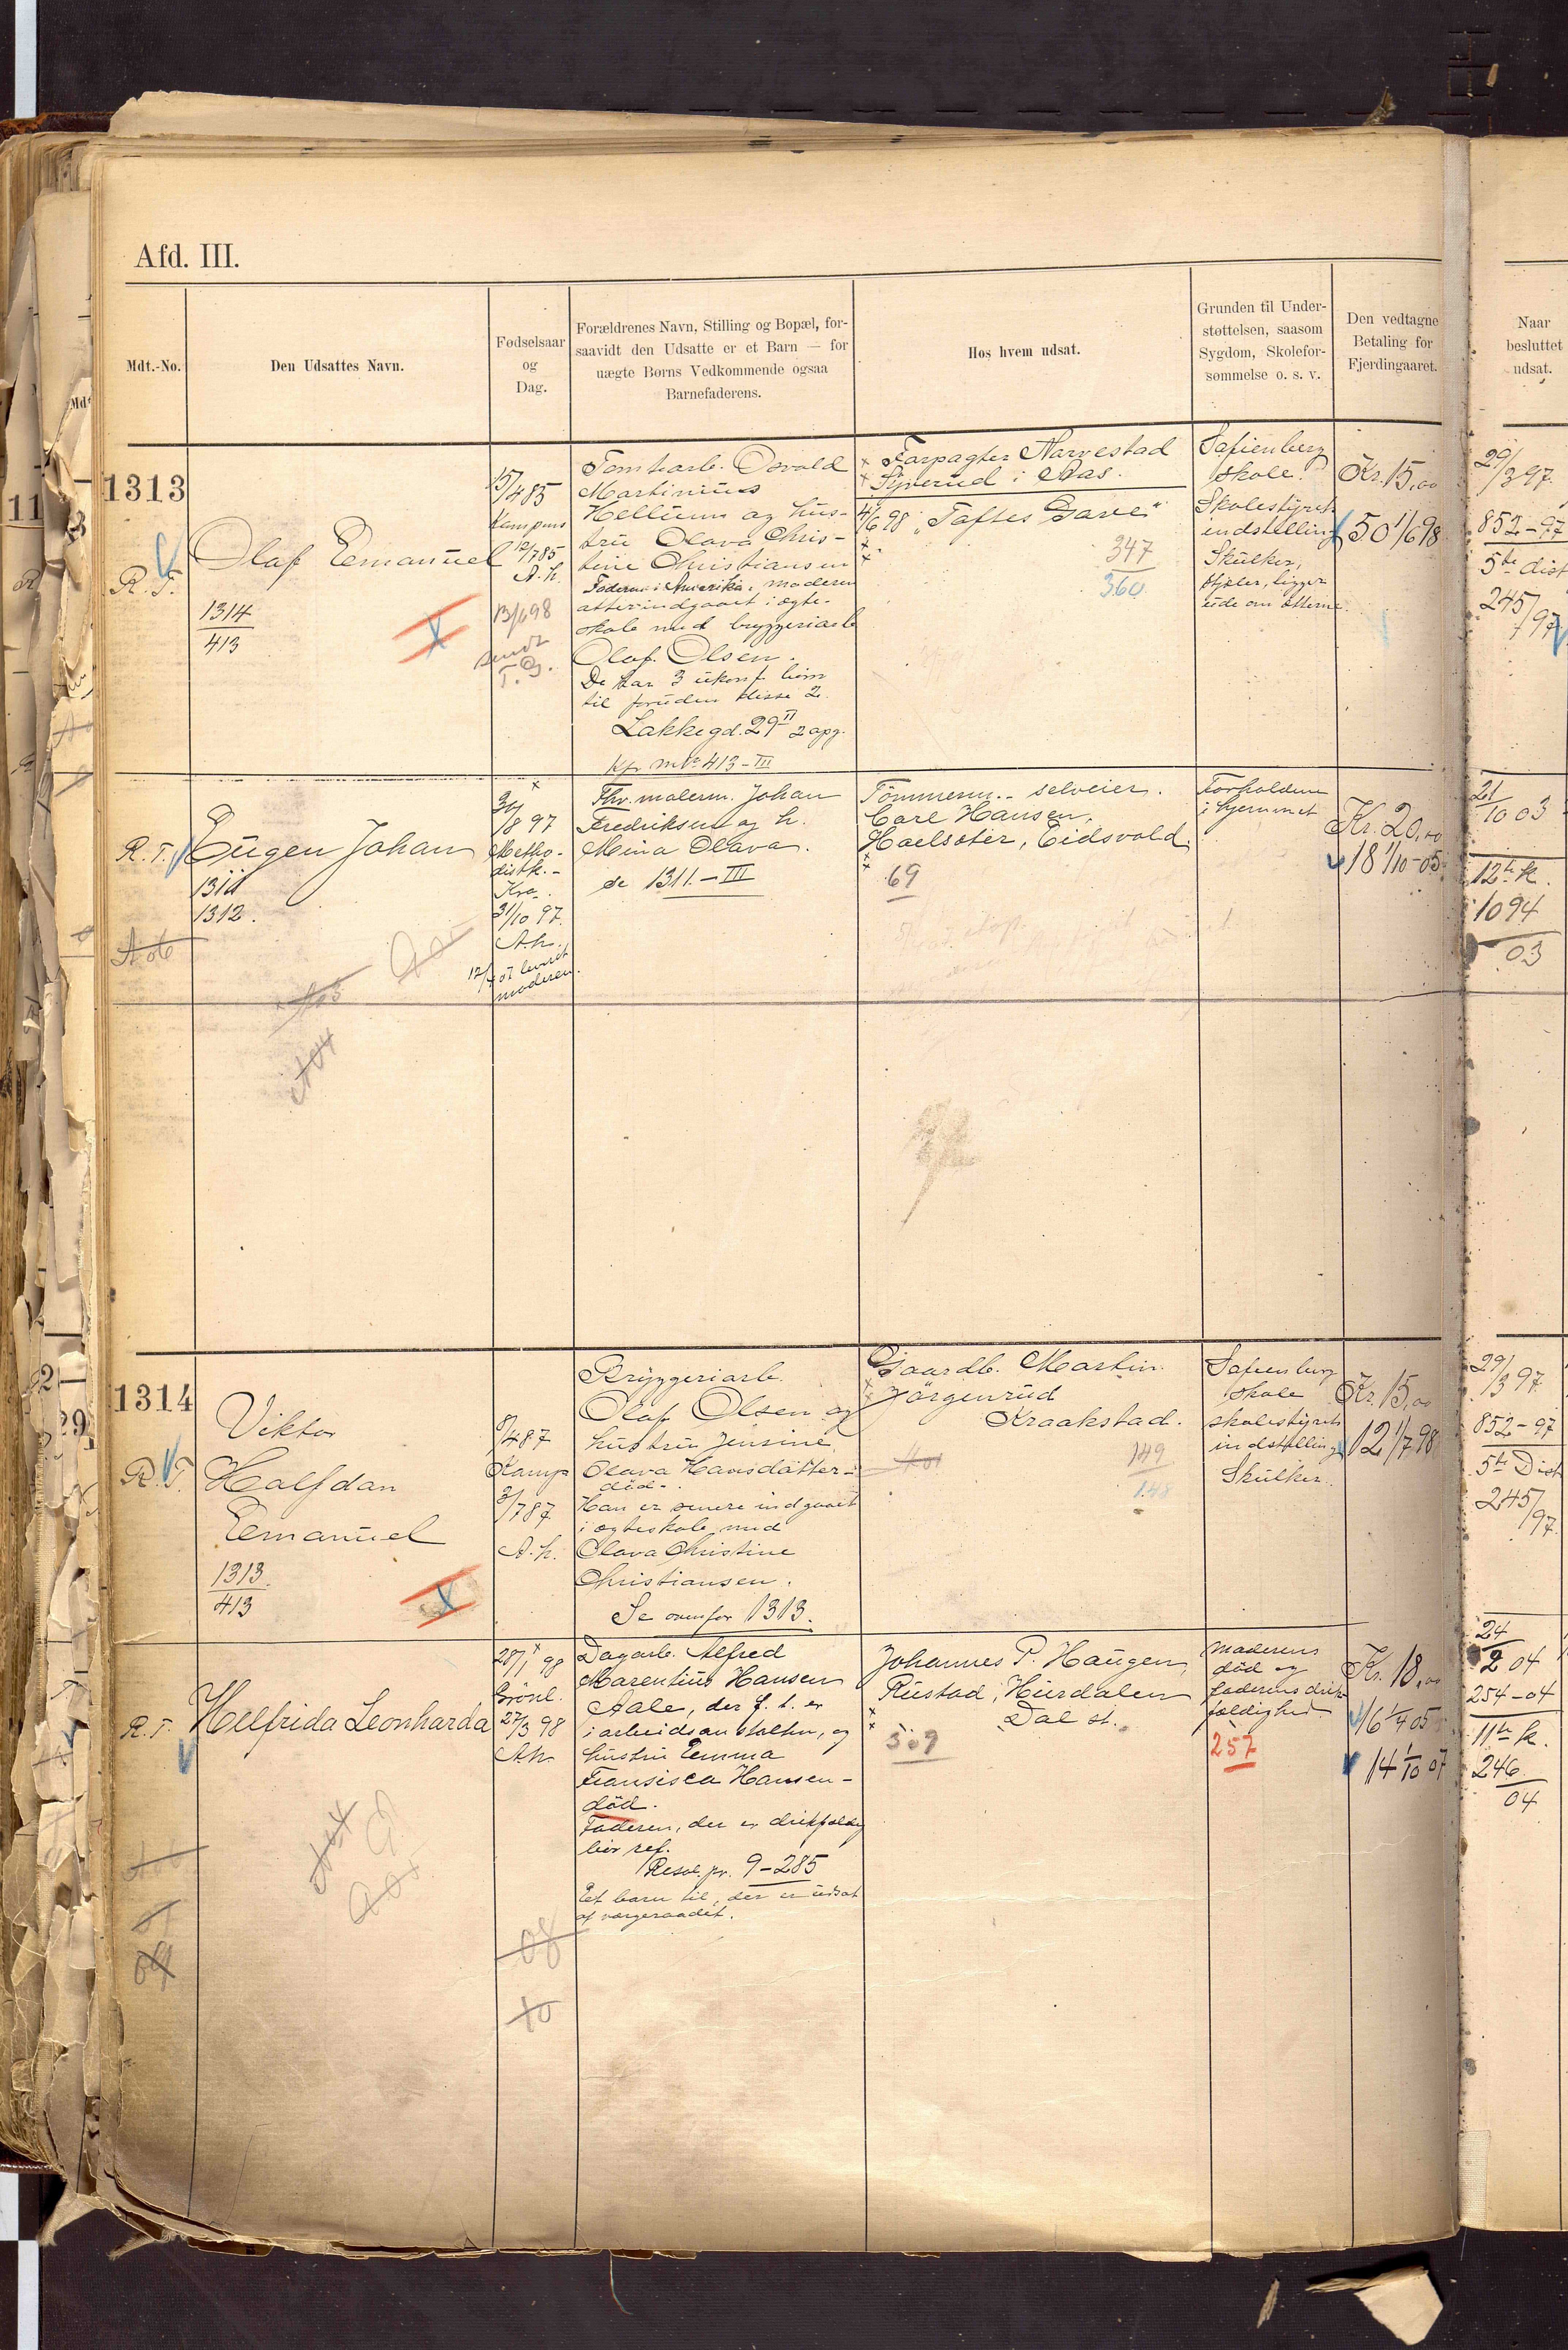 Afd. III.
Mdt.-No.
Den Udsattes Navn.
Fødselsaar
og
Dag.
Forældrenes Navn, Stilling og Bopæl, for-
saavidt den Udsatte er et Barn — for
uægte Børns Vedkommende ogsaa
Barnefaderens.
Hos hvem udsat.
Grunden til Under-
støttelsen, saasom
Sygdom, Skolefor-
sømmelse o. s. v.
Den vedtagne
Betaling for
Fjerdingaaret.
Naar
besluttet
udsat.
1313
R. T.
Olaf Emanuel
1314
413
15/4 85
Kampens
12/7 85
A. h.
13/6 98
sendt
T. G.
Tomtearb. Osvald
Martinius
Hellum og hus-
tru Olava Chris-
tine Christiansen
Faderen i Amerika, moderen
atter indgaaet i ægte-
skab med bryggeriarb
Olaf Olsen.
De har 3 ukonf. børn
til foruden disse 2
Lakkegd. 29 II 2 opg.
Kfr mt. 413 - III
Forpagter Narvestad
i Aas.
4/6 98 „Toftes Gave"
347
360
Sofienberg
skole.
Skolestyrets
indstilling
Skulker,
stjæler, ligger
ude om nætterne.
Kr. 15,00
50 1/6 98
29/3 97
852-97
5te dist
245/97
R. T.
Eugen Johan
1311
1312.
A 06
A 05
A 04
30/8 97
Metho-
distk.-
Kra.
31/10 97.
A. h.
12/ 07 leveret
moderen.
Fhv. malerm. Johan
Fredriksen og h.
Mina Olava.
se 1311. - III
Tömmerm. - selveier.
Carl Hansen,
Hoelsæter, Eidsvold.
69
Forholdene
i hjemmet
Kr. 20,00
18 1/10-05
21/10 03
12te k.
1094
03
1314
R. T.
Viktor
Halfdan
Emanuel
1313.
413
8/4 87
Kamp
3/7 87
A. h.
Bryggeriarb.
Olaf Olsen og
hustru Jensine
Olava Hansdatter -
död -.
Han er senere indgaaet
i ægteskab med
Olava Christine
Christiansen.
Se ovenfor 1313.
Gaardb. Martin
Jörgenrud
Kraakstad.
149
148
Sofienberg
skole
skolestyrets
indstilling
Skulker.
Kr. 15,00
12 1/7 98
29/3 97
852-97
5te Dist
245/97.
R. T.
Helfrida Leonharda
28/1 98
Grönl.
27/3 98
A.h.
08
10
Dagarb. Alfred
Marentius Hansen
Aale, der f. t. er
i arbeidsanstalten, og
hustru Emma
Fransisca Hansen -
död.
Faderen, der er drikfældig
bör ref.
Resol. pr. 9-285
Et barn til, der er udsat
af værgeraadet.
Johannes P. Haugen,
Rustad, Hurdalen
Dal st.
509
Moderens
död og
faderens drik-
fældighed
257
Kr. 18,00
16 1/4 05
14 1/10 07
24/2 04
254-04
11te k.
246
04